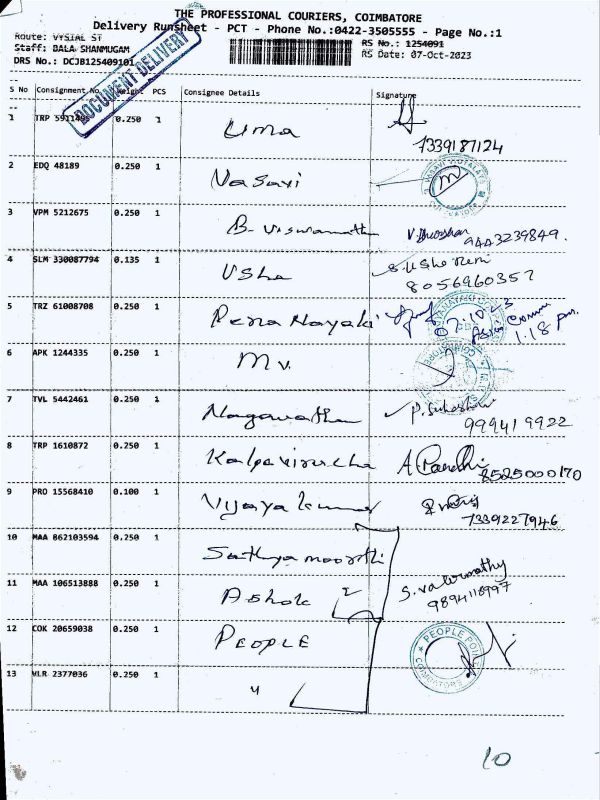 THE PROFESSIONAL COURIERS, COIMBATORE
Delivery Runsheet - PCT - Phone No.:0422-3505555 - Page No.:1
Route: VYSIAL ST
RS No.: 1254091
Staff: BALA SHANMUGAM
RS Date: 07-Oct-2023
DRS No.: DCJB125409101
DOCUMENT DELIVERY
S No Consignment No Weight PCS Consignee Details Signature
1 TRP 5911495 0.250 1 Uma
7339187124
2 EDQ 48189 0.250 1 Vasavi
3 VPM 5212675 0.250 1 B. Viswanath
9443239849.
4 SLM 330087794 0.135 1 Usha S. Usha Rani
8056960357
5 TRZ 61008708 0.250 1 Perra Nayaki 07.10.23
1.18 pm.
6 APK 1244335 0.250 1 M v.
7 TVL 5442461 0.250 1
999419922
8 TRP 1610872 0.250 1 Kalpavirucha A Pandhi
8525000170
9 PRO 15568410 0.100 1 Vijaya kumar
7339227946
10 MAA 862103594 0.250 1 Sathya moorthi
11 MAA 106513888 0.250 1 Ashok 2 S. Valarmathy
9894118997
12 COK 20659038 0.250 1 PEOPLE
PEOPLE
COIMBATORE
13 VLR 2377036 0.250 1 4
10